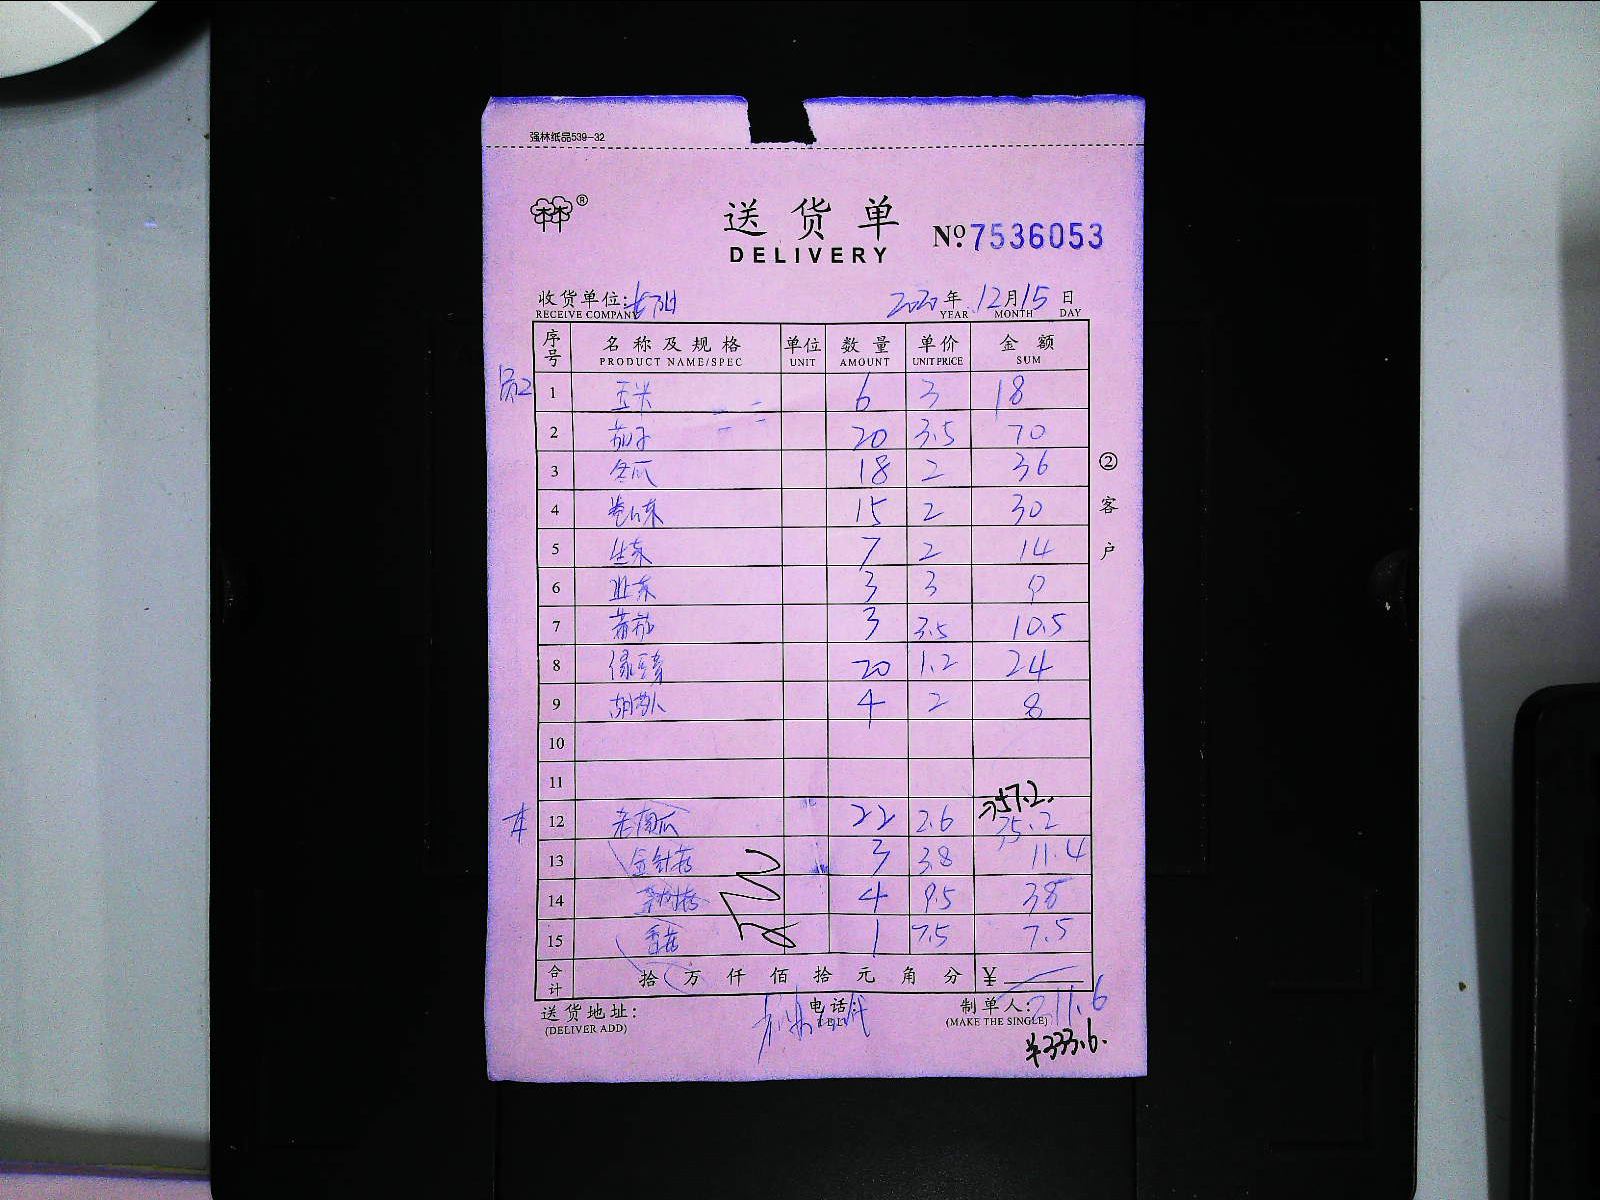 强林纸品539-32
送货单
DELIVERY
№ 7536053
收货单位:
RECEIVE COMPANY
2020年12月15日
YEAR MONTH DAY
序号 名称及规格 单位 数量 单价 金额
PRODUCT NAME/SPEC UNIT AMOUNT UNIT PRICE SUM
1 玉米 6 3 18
2 茄子 20 3.5 70
3 冬瓜 18 2 36
4 15 2 30
5 生菜 7 2 14
6 3 3 9
7 蕃茄 3 3.5 10.5
8 绿豆芽 20 1.2 24
9 胡萝卜 4 2 8
10
11
57.2
12 老南瓜 22 2.6 75.2
13 金针菇 3 3.8 11.4
14 茶树菇 4 9.5 38
15 香菇 1 7.5 7.5
合计 拾万仟佰拾元角分 ¥
②客户
送货地址: 电话: 制单人:
(DELIVER ADD) (TEL) (MAKE THE SINGLE)
¥333.6.